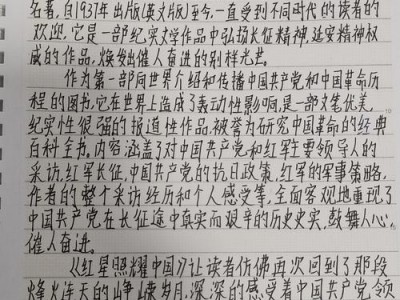 名著,自1937年出版(英文版)至今,一直受到不同时代的读者的
欢迎,它是一部纪实文学作品中弘扬长征精神,延安精神权
威的作品,焕发出催人奋进的别样光芒。
作为第一部向世界介绍和传播中国共产党和中国革命历
程的图书,它在世界上造成了轰动性影响,是一部文笔优美,
纪实性很强的报道性作品,被誉为研究中国革命的经典
百科全书,内容涵盖了对中国共产党和红军主要领导人的
采访,红军长征,中国共产党的抗日政策,红军的军事策略,
作者的整个采访经历和个人感受等,全面客观地重现了
中国共产党在长征途中真实而艰辛的历史史实,鼓舞人心,
催人奋进。
《红星照耀中国》让读者仿佛再次回到了那段
烽火连天的峥嵘岁月,深深的感受着中国共产党领